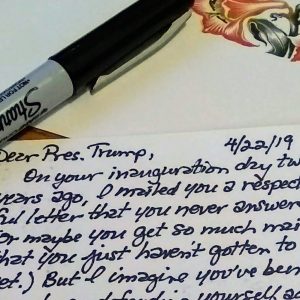 Sha
NOT FOR
Dear Pres. Trump, 4/22/19
On your inauguration day tw
years ago, I mailed you a respect
ful letter that you never answere
or maybe you get so much mai
that you just haven't gotten to
et.) But I imagine you've been
defending yourself a